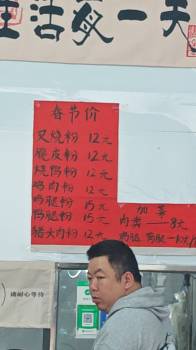 生活爱一天
春节价
叉烧粉 12元
脆皮粉 12元
烧鸭粉 12元
鸡肉粉 12元
鸡腿粉 15元
鸭腿粉 15元
猪头肉粉 12元
加菜
肉类——8元
鸡腿
请耐心等待